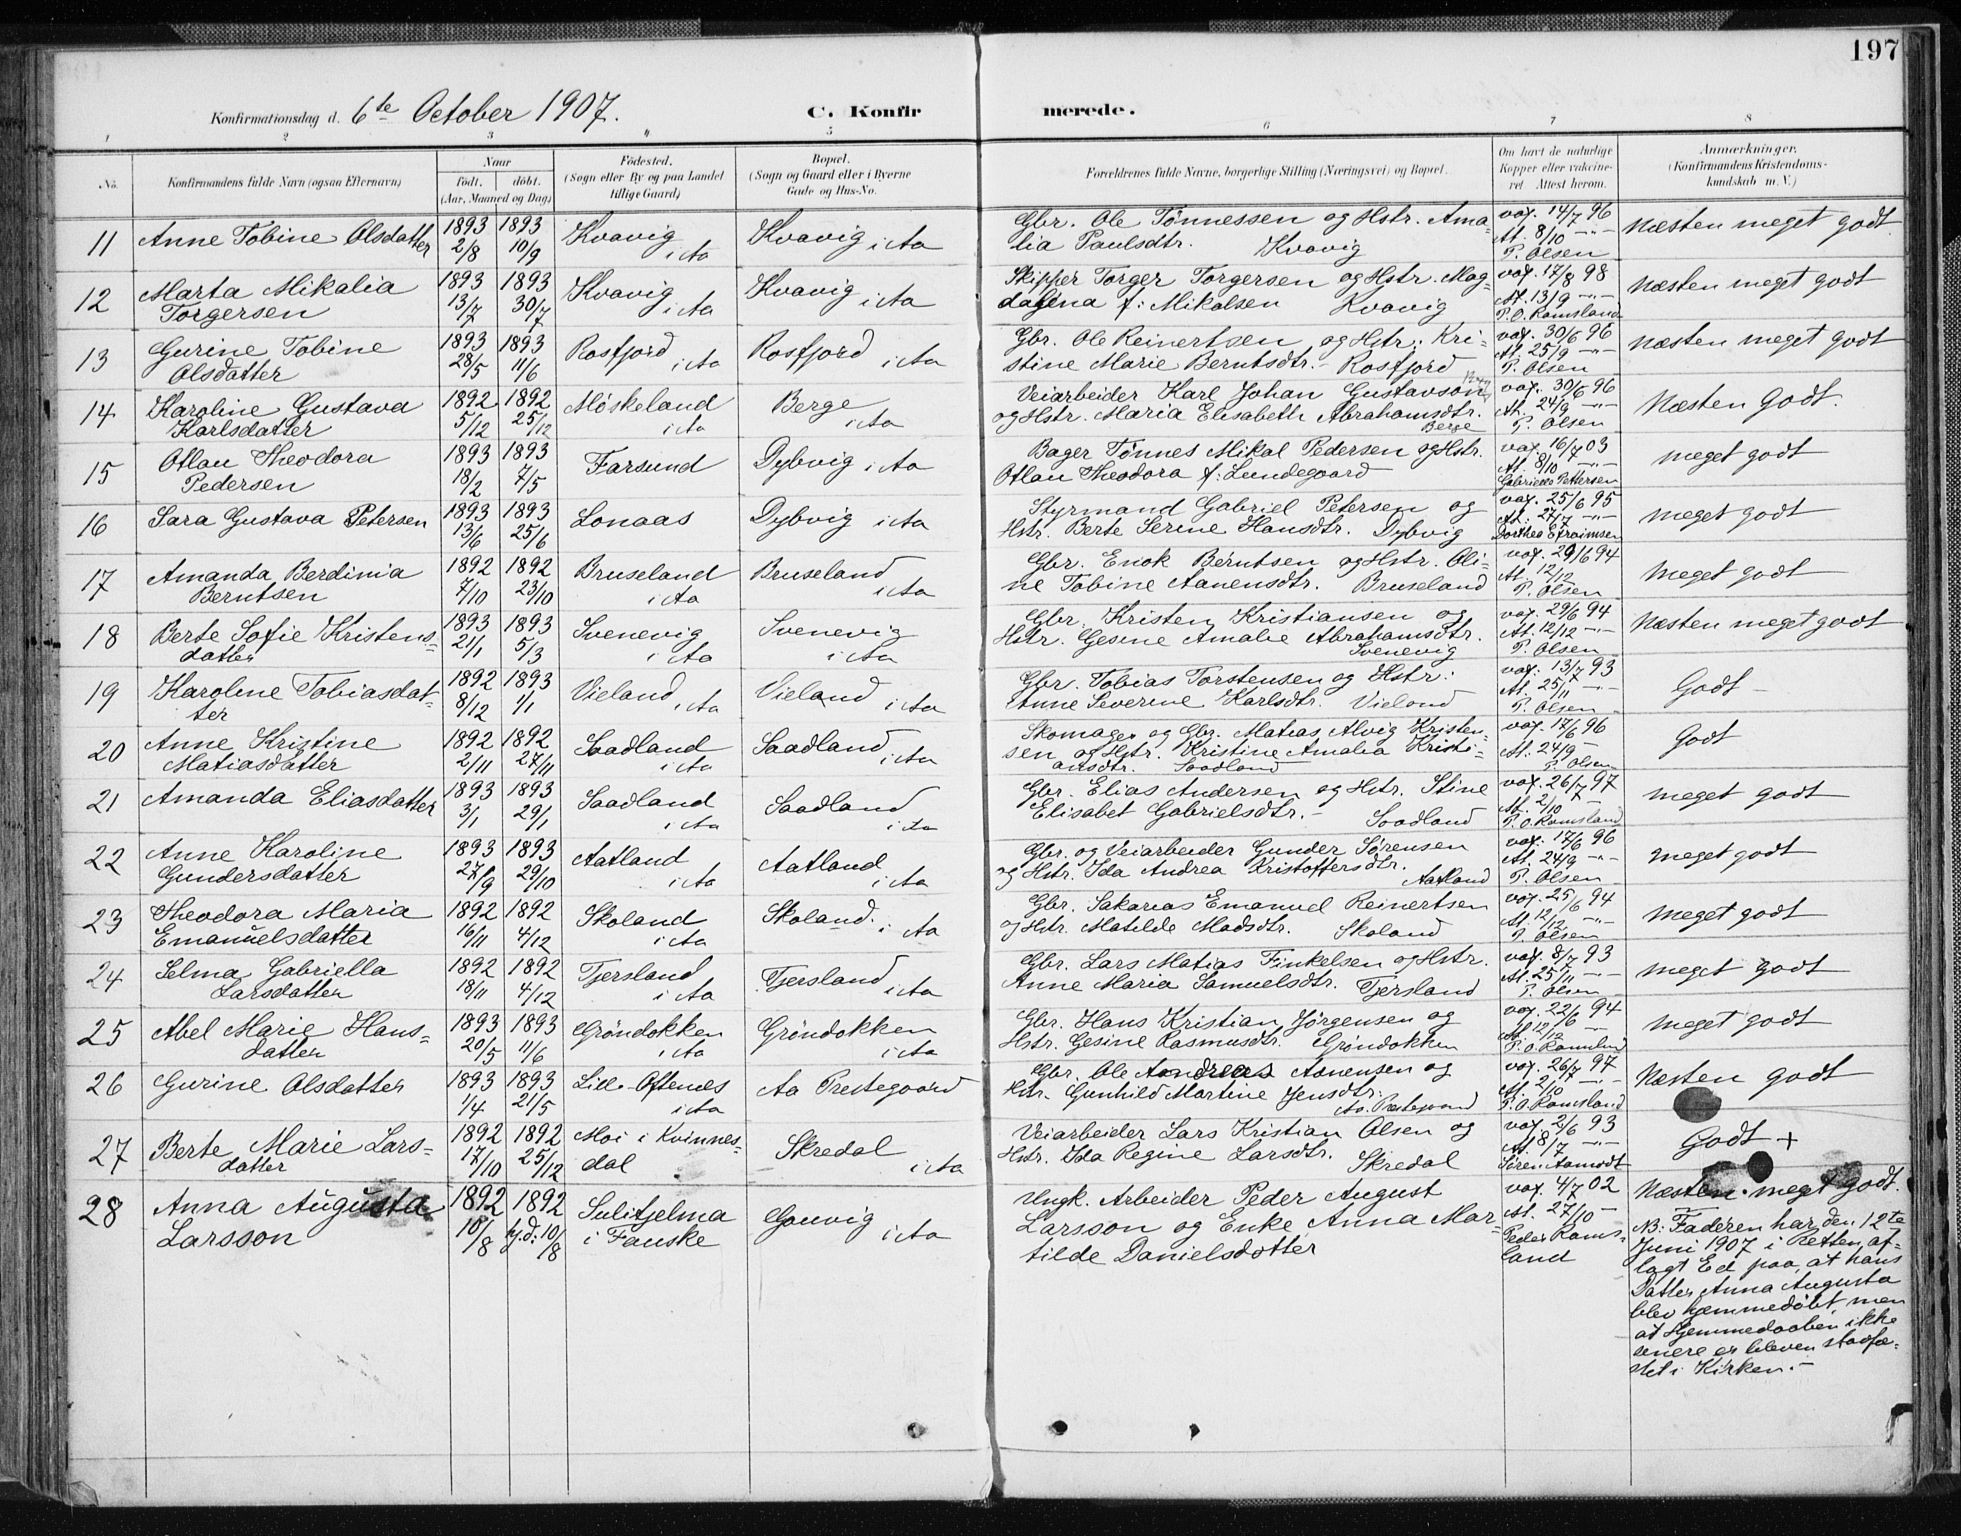 197
Konfirmationsdag d. 6te October 1907. C. Konfirmerede.
1 2 3 4 5 6 7 8
No. Konfirmandens fulde Navn (ogsaa Efternavn) Naar födt. döbt. (Aar, Maaned og Dag) Födested. (Sogn eller By og paa Landet tillige Gaard) Bopæl. (Sogn og Gaard eller i Byerne Gade og Hus-No. Forældrenes fulde Navne, borgerlige Stilling (Næringsvei) og Bopæl. Om havt de naturlige Kopper eller vakcineret. Attest herom. Anmærkninger. (Konfirmandens Kristendomskundskab m. V.)
11 Anne Tobine Olsdatter 1893 2/8 1893 10/9 Kvavig i Aa Kvavig i Aa Gbr. Ole Tønnessen og Hstr. Amalia Paulsdtr. Kvavig vax. 14/7 96 At. 8/10 -"- P. Olsen Næsten meget godt.
12 Marta Mikalia Torgersen 1893 13/7 1893 30/7 Kvavig i Aa Kvavig i Aa Skipper Torger Torgersen og Hstr. Magdalena f: Mikalsen Kvavig vax. 17/8 98 At. 13/9 -"- P. O. Ramsland Næsten meget godt
13 Gurine Tobine Olsdatter 1893 28/5 1893 11/6 Rosfjord i Aa Rosfjord i Aa Gbr. Ole Reinertsen og Hstr: Kristine Marie Berntsdtr. - Rosfjord vax. 30/6 96 At. 25/9 -"- P. Olsen Næsten meget godt
14 Karoline Gustava Karlsdatter 1892 5/12 1892 25/12 Møskeland i Aa Berge i Aa Veiarbeider Karl Johan Gustavson og Hstr. Maria Elisabeth Abrahamsdtr. Berge vax. 30/6 96 At. 24/9 -"- P. Olsen Næsten Godt.
15 Otlau Theodora Pedersen 1893 18/2 1893 7/5 Farsund Dybvig i Aa Bager Tønnes Mikal Pedersen og Hstr. Otlau Theodora f: Lundegaard vax. 16/7 03 At. 8/10 -"- Gabrielle Pettersen meget godt
16 Sara Gustava Petersen 1893 13/6 1893 25/6 Lonaas Dybvig i Aa Styrmand Gabriel Petersen og Hstr. Berte Serine Hansdtr. Dybvig vax. 25/6 95 At. 27/7 -"- Dorthea Efraimsen meget godt
17 Amanda Berdinia Berntsen 1892 7/10 1892 23/10 Bruseland i Aa Bruseland i Aa Gbr. Enok Berntsen og Hstr. Oline Tobine Aanensdtr. Bruseland vax. 29/6 94 At. 12/12 P. Olsen Meget godt
18 Berte Sofie Kristensdatter 1893 21/1 1893 5/3 Svenevig i Aa Svenevig i Aa Gbr. Kristen Kristiansen og Hstr. Gesine Amalie Abrahamsdtr. Svenevig vax. 29/6 94 At. 12/12 -"- P. Olsen Næsten meget godt
19 Karoline Tobiasdatter 1892 8/12 1893 1/1 Vieland i Aa Vieland i Aa Gbr. Tobias Torstensen og Hstr: Anne Severine Karlsdtr. Vieland vax. 13/7 93 At. 25/11 -"- P. Olsen Godt -
20 Anne Kristine Matiasdatter 1892 2/11 1892 27/11 Saadland i Aa Saadland i Aa Skomager og Gbr. Matias Alvig Kristensen og Hstr. Kristine Amalia Kristiansdtr. Saadland vax. 17/6 96 At. 24/9 - P. Olsen Godt
21 Amanda Eliasdatter 1893 3/1 1893 29/1 Saadland i Aa Saadland i Aa Gbr. Elias Andersen og Hstr. Stine Elisabet Gabrielsdtr. - Saadland vax. 26/7 97 At. 2/10 - P. O. Ramsland meget godt
22 Anne Karoline Gundersdatter 1893 27/9 1893 29/10 Aatland i Aa Aatland i Aa Gbr. og Veiarbeider Gunder Sørensen og Hstr. Ida Andrea Kristoffersdtr. Aatland vax. 17/6 96 At. 24/9 -"- P. Olsen meget godt
23 Theodora Maria Emanuelsdatter 1892 16/11 1892 4/12 Skoland i Aa Skoland i Aa Gbr. Sakarias Emanuel Reinertsen og Hstr. Matilde Madsdtr. Skoland vax. 25/6 94 At. 12/12 -"- P. Olsen meget godt
24 Selma Gabriella Larsdatter 1892 18/11 1892 4/12 Tjersland i Aa Tjersland i Aa Gbr. Lars Matias Finkelsen og Hstr. Anne Maria Samuelsdtr. Tjersland vax. 8/7 93 At. 25/11 -"- P. Olsen meget godt
25 Abel Marie Hansdatter 1893 20/5 1893 11/6 Grøndokken i Aa Grøndokken i Aa Gbr. Hans Kristian Jørgensen og Hstr. Gesine Rasmusdtr. Grøndokken vax. 22/6 94 At. 12/12 - P. O. Ramsland meget godt
26 Gurine Olsdatter 1893 1/4 1893 21/5 Lille-Oftenes i Aa Aa Prestegaard Gbr. Ole Andreas Aanensen og Hstr. Gunhild Martine Jensdtr. Aa Prestegaard vax. 26/7 97 At. 2/10 -"- P. O. Ramsland Næsten godt
27 Berte Marie Larsdatter 1892 17/10 1892 25/12 Moi i Kvinnesdal Skredal i Aa Veiarbeider Lars Kristian Olsen og Hstr. Ida Regine Larsdtr. Skredal vax. 2/6 93 At. 8/7 -"- Søren Aamodt Godt +
28 Anna Augusta Larsson 1892 10/8 1892 hj.d: 10/8 Sulitjelma i Fauske Gouvig i Aa Ungk. Arbeider Peder August Larsson og Enke Anna Martilde Danielsdatter vax. 4/7 02 At. 27/10 - Peder Ramsland Næsten meget godt.
NB: Faderen har den 12te
Juni 1907 i Retten af-
lagt Ed paa, at hans
Datter Anna Augusta
blev hjemmedøbt, men
at Hjemmedaaben ikke
senere er bleven stadfæ-
stet i Kirken. -